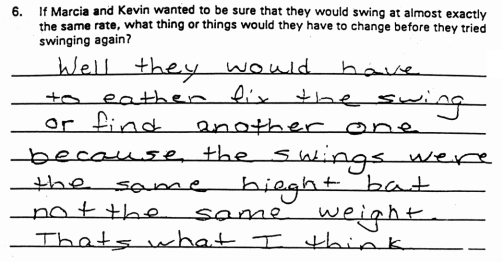 6. If Marcia and Kevin wanted to be sure that they would swing at almost exactly
the same rate, what thing or things would they have to change before they tried
swinging again?
Well they would have
to eather fix the swing
or find another one
because the swings were
the same hieght but
not the same weight.
Thats what I think